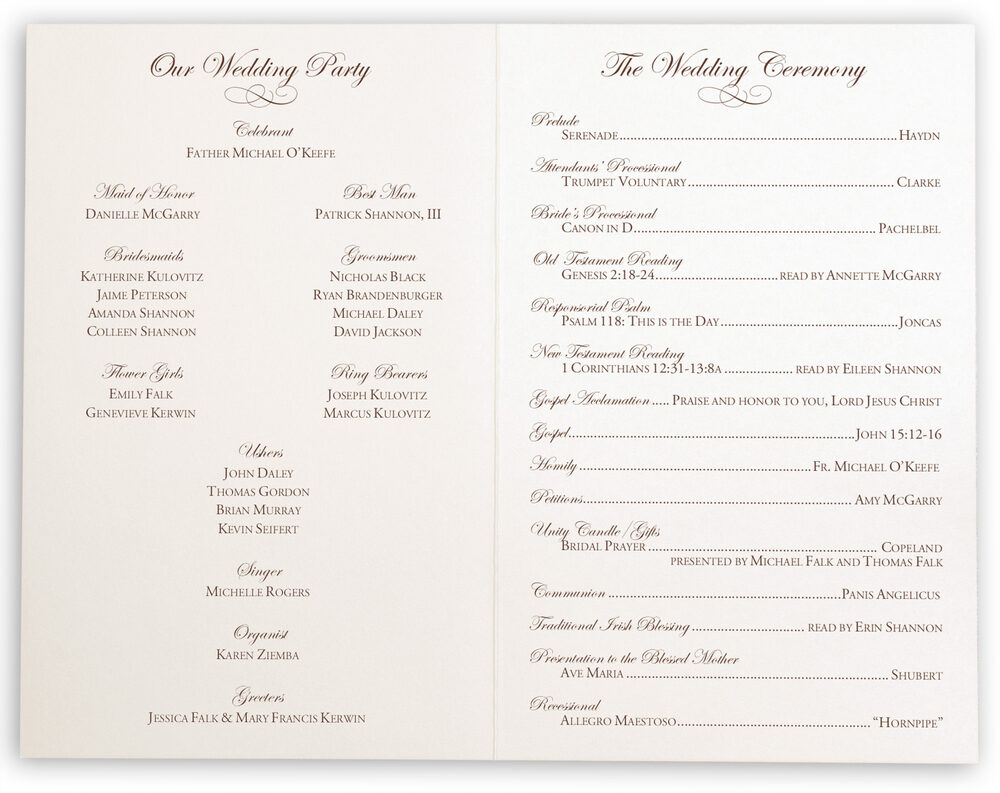 Our Wedding Party
Celebrant
Father Michael O'Keefe
Maid of Honor
Danielle McGarry
Best Man
Patrick Shannon, III
Bridesmaids
Katherine Kulovitz
Jaime Peterson
Amanda Shannon
Colleen Shannon
Groomsmen
Nicholas Black
Ryan Brandenburger
Michael Daley
David Jackson
Flower Girls
Emily Falk
Genevieve Kerwin
Ring Bearers
Joseph Kulovitz
Marcus Kulovitz
Ushers
John Daley
Thomas Gordon
Brian Murray
Kevin Seifert
Singer
Michelle Rogers
Organist
Karen Ziemba
Greeters
Jessica Falk & Mary Francis Kerwin
The Wedding Ceremony
Prelude
Serenade........Haydn
Attendants' Processional
Trumpet Voluntary........Clarke
Bride's Processional
Canon in D........Pachelbel
Old Testament Reading
Genesis 2:18-24........read by Annette McGarry
Responsorial Psalm
Psalm 118: This is the Day........Joncas
New Testament Reading
1 Corinthians 12:31-13:8a........read by Eileen Shannon
Gospel Acclamation.....Praise and honor to you, Lord Jesus Christ
Gospel........John 15:12-16
Homily........Fr. Michael O'Keefe
Petitions........Amy McGarry
Unity Candle/Gifts
Bridal Prayer........Copeland
presented by Michael Falk and Thomas Falk
Communion........Panis Angelicus
Traditional Irish Blessing........read by Erin Shannon
Presentation to the Blessed Mother
Ave Maria........Shubert
Recessional
Allegro Maestoso........"Hornpipe"